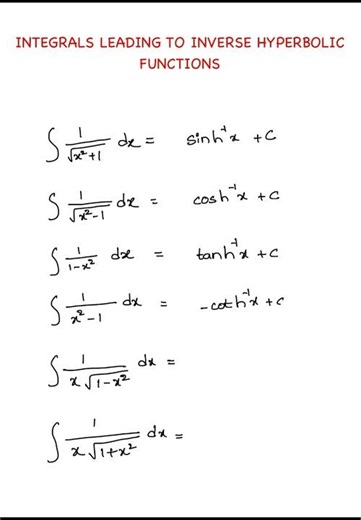 INTEGRALS LEADING TO INVERSE HYPERBOLIC
FUNCTIONS
∫ 1/√(x²+1) dx = sinh⁻¹x + C
∫ 1/√(x²-1) dx = cosh⁻¹x + C
∫ 1/(1-x²) dx = tanh⁻¹x + C
∫ 1/(x²-1) dx = -coth⁻¹x + C
∫ 1/(x√(1-x²)) dx =
∫ 1/(x√(1+x²)) dx =